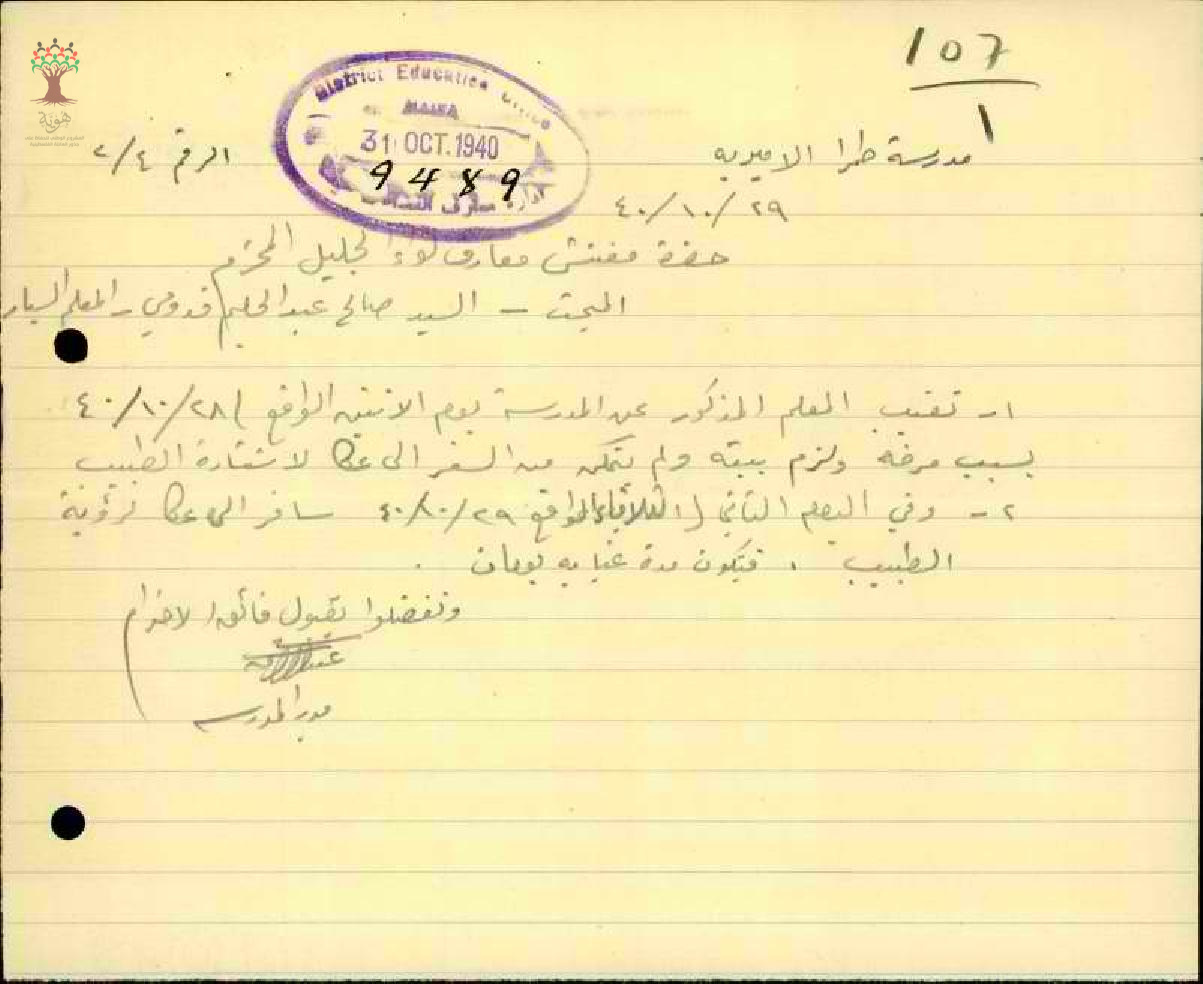 107
1
District Education Office
HAIFA
31 OCT. 1940
9489
هوية
مدرسة طمرا الاميريه
الرقم ٢/٤
٤٠/١٠/٢٩
حضرة مفتش معارف لواء الجليل المحترم
المبحث – السيد صالح عبد الحليم قدومي – المعلم السيار
١- تغيب المعلم المذكور عن المدرسة يوم الاثنين الواقع ٤٠/١٠/٢٨
بسبب مرضه ولزم بيته ولم يتمكن من السفر الى عكا لاستشارة الطبيب
٢- وفي اليوم الثاني (الثلاثاء) الواقع ٤٠/١٠/٢٩ سافر الى عكا لرؤية
الطبيب . فتكون مدة غيابه يومان .
وتفضلوا بقبول فائق الاحترام
مدير المدرسه